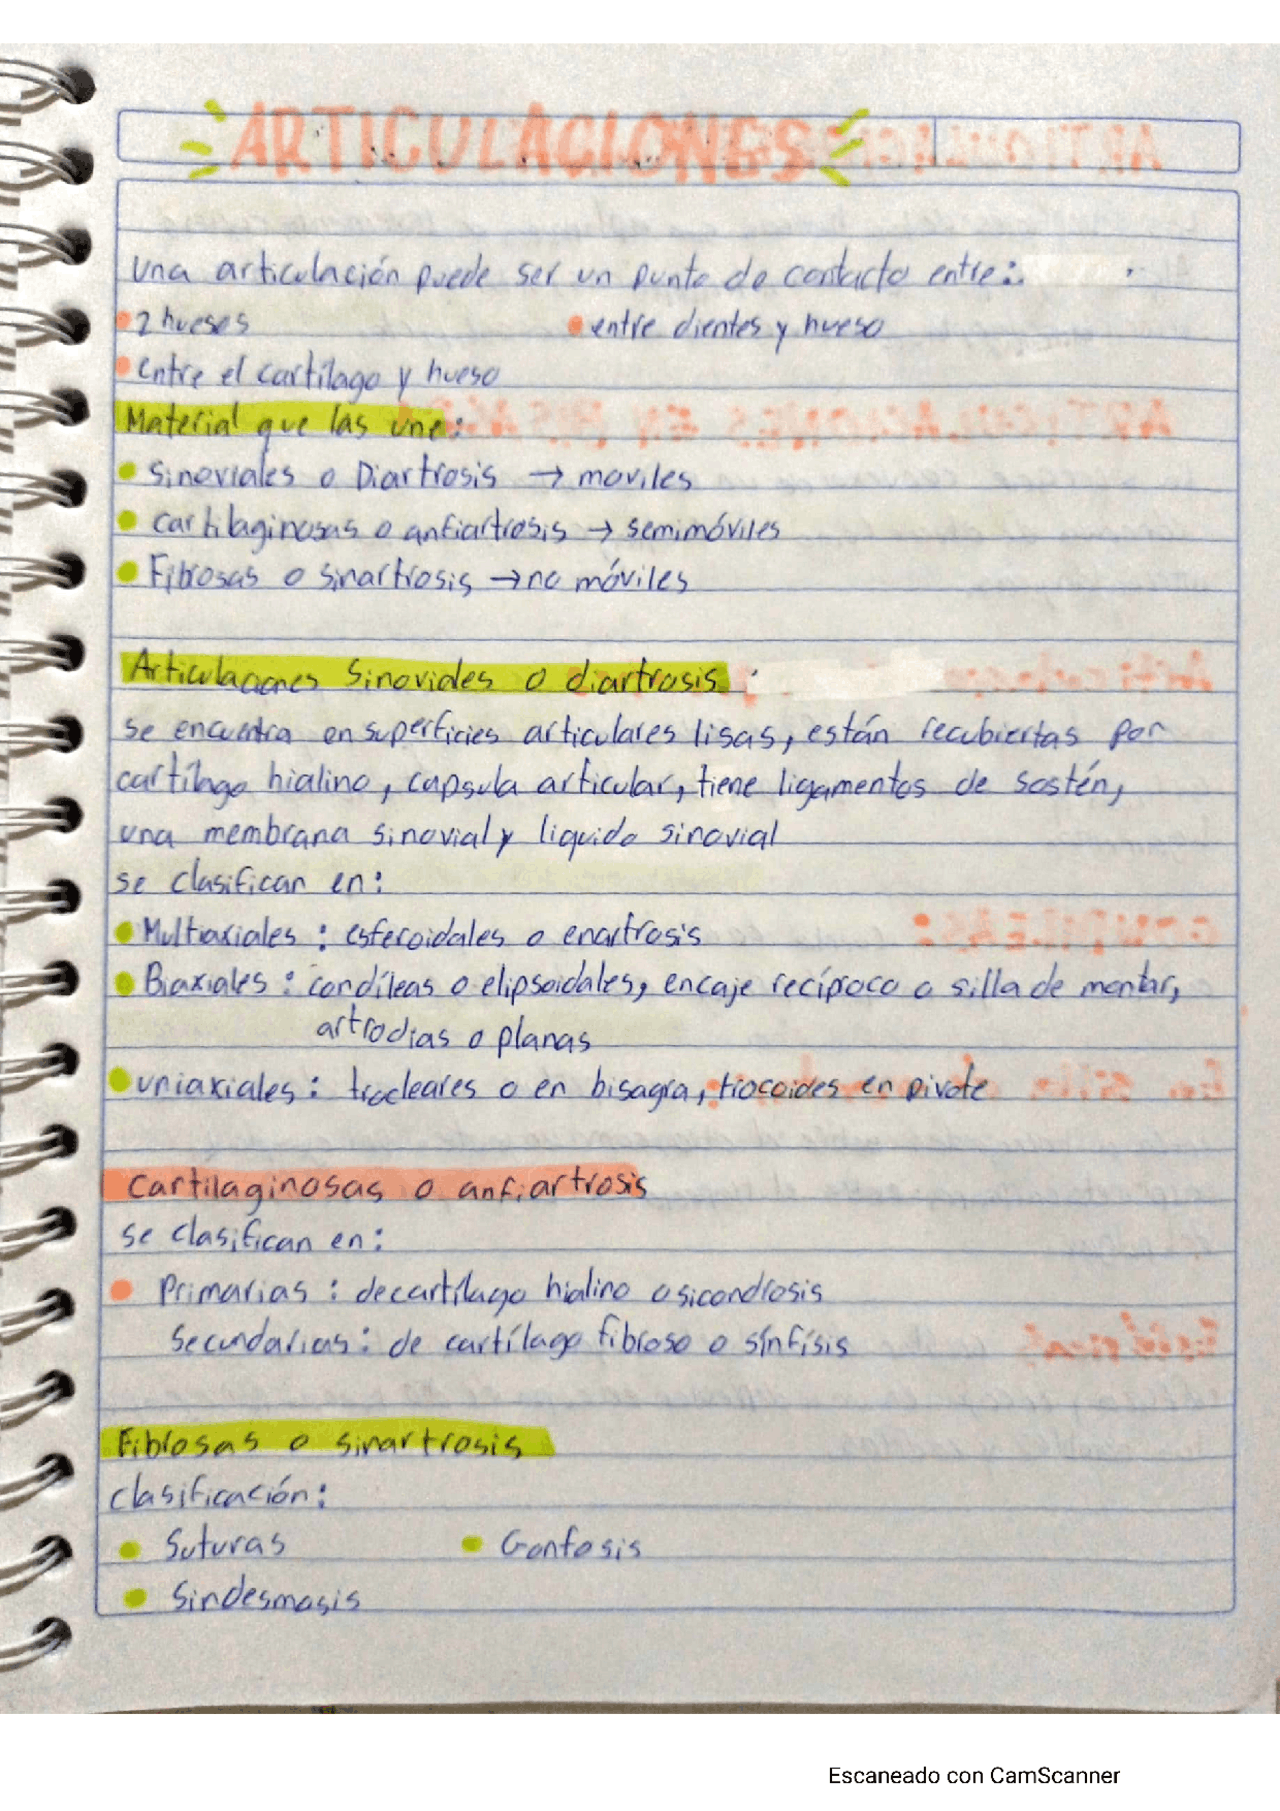 ARTICULACIONES
Una articulación puede ser un punto de contacto entre:
• 2 huesos • entre dientes y hueso
• Entre el cartílago y hueso
Material que las une:
• Sinoviales o Diartrosis → moviles
• cartilaginosas o anfiartrosis → semimóviles
• Fibrosas o sinartrosis → no móviles
Articulaciones Sinoviales o diartrosis
se encuentra en superficies articulares lisas, están recubiertas por
cartílago hialino, capsula articular, tiene ligamentos de sostén,
una membrana sinovial y liquido sinovial
se clasifican en:
• Multiaxiales: esferoidales o enartrosis
• Biaxiales: condíleas o elipsoidales, encaje recíproco o silla de montar,
artrodias o planas
• uniaxiales: trocleares o en bisagra, trocoides en pivote
Cartilaginosas o anfiartrosis
se clasifican en:
• Primarias: de cartílago hialino o sicondrosis
Secundarias: de cartílago fibroso o sínfisis
Fibrosas o sinartrosis
clasificación:
• Suturas • Gonfosis
• Sindesmosis
Escaneado con CamScanner